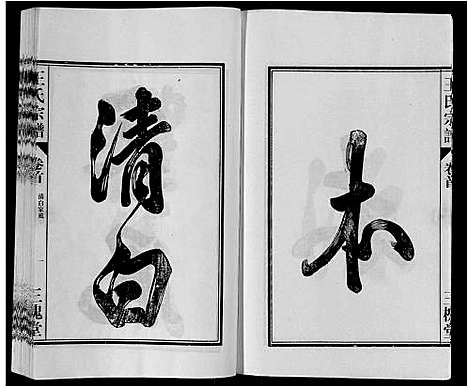 本
清白
王氏宗譜
卷首
三槐堂
王氏宗譜
卷首
清白家風
一
三槐堂